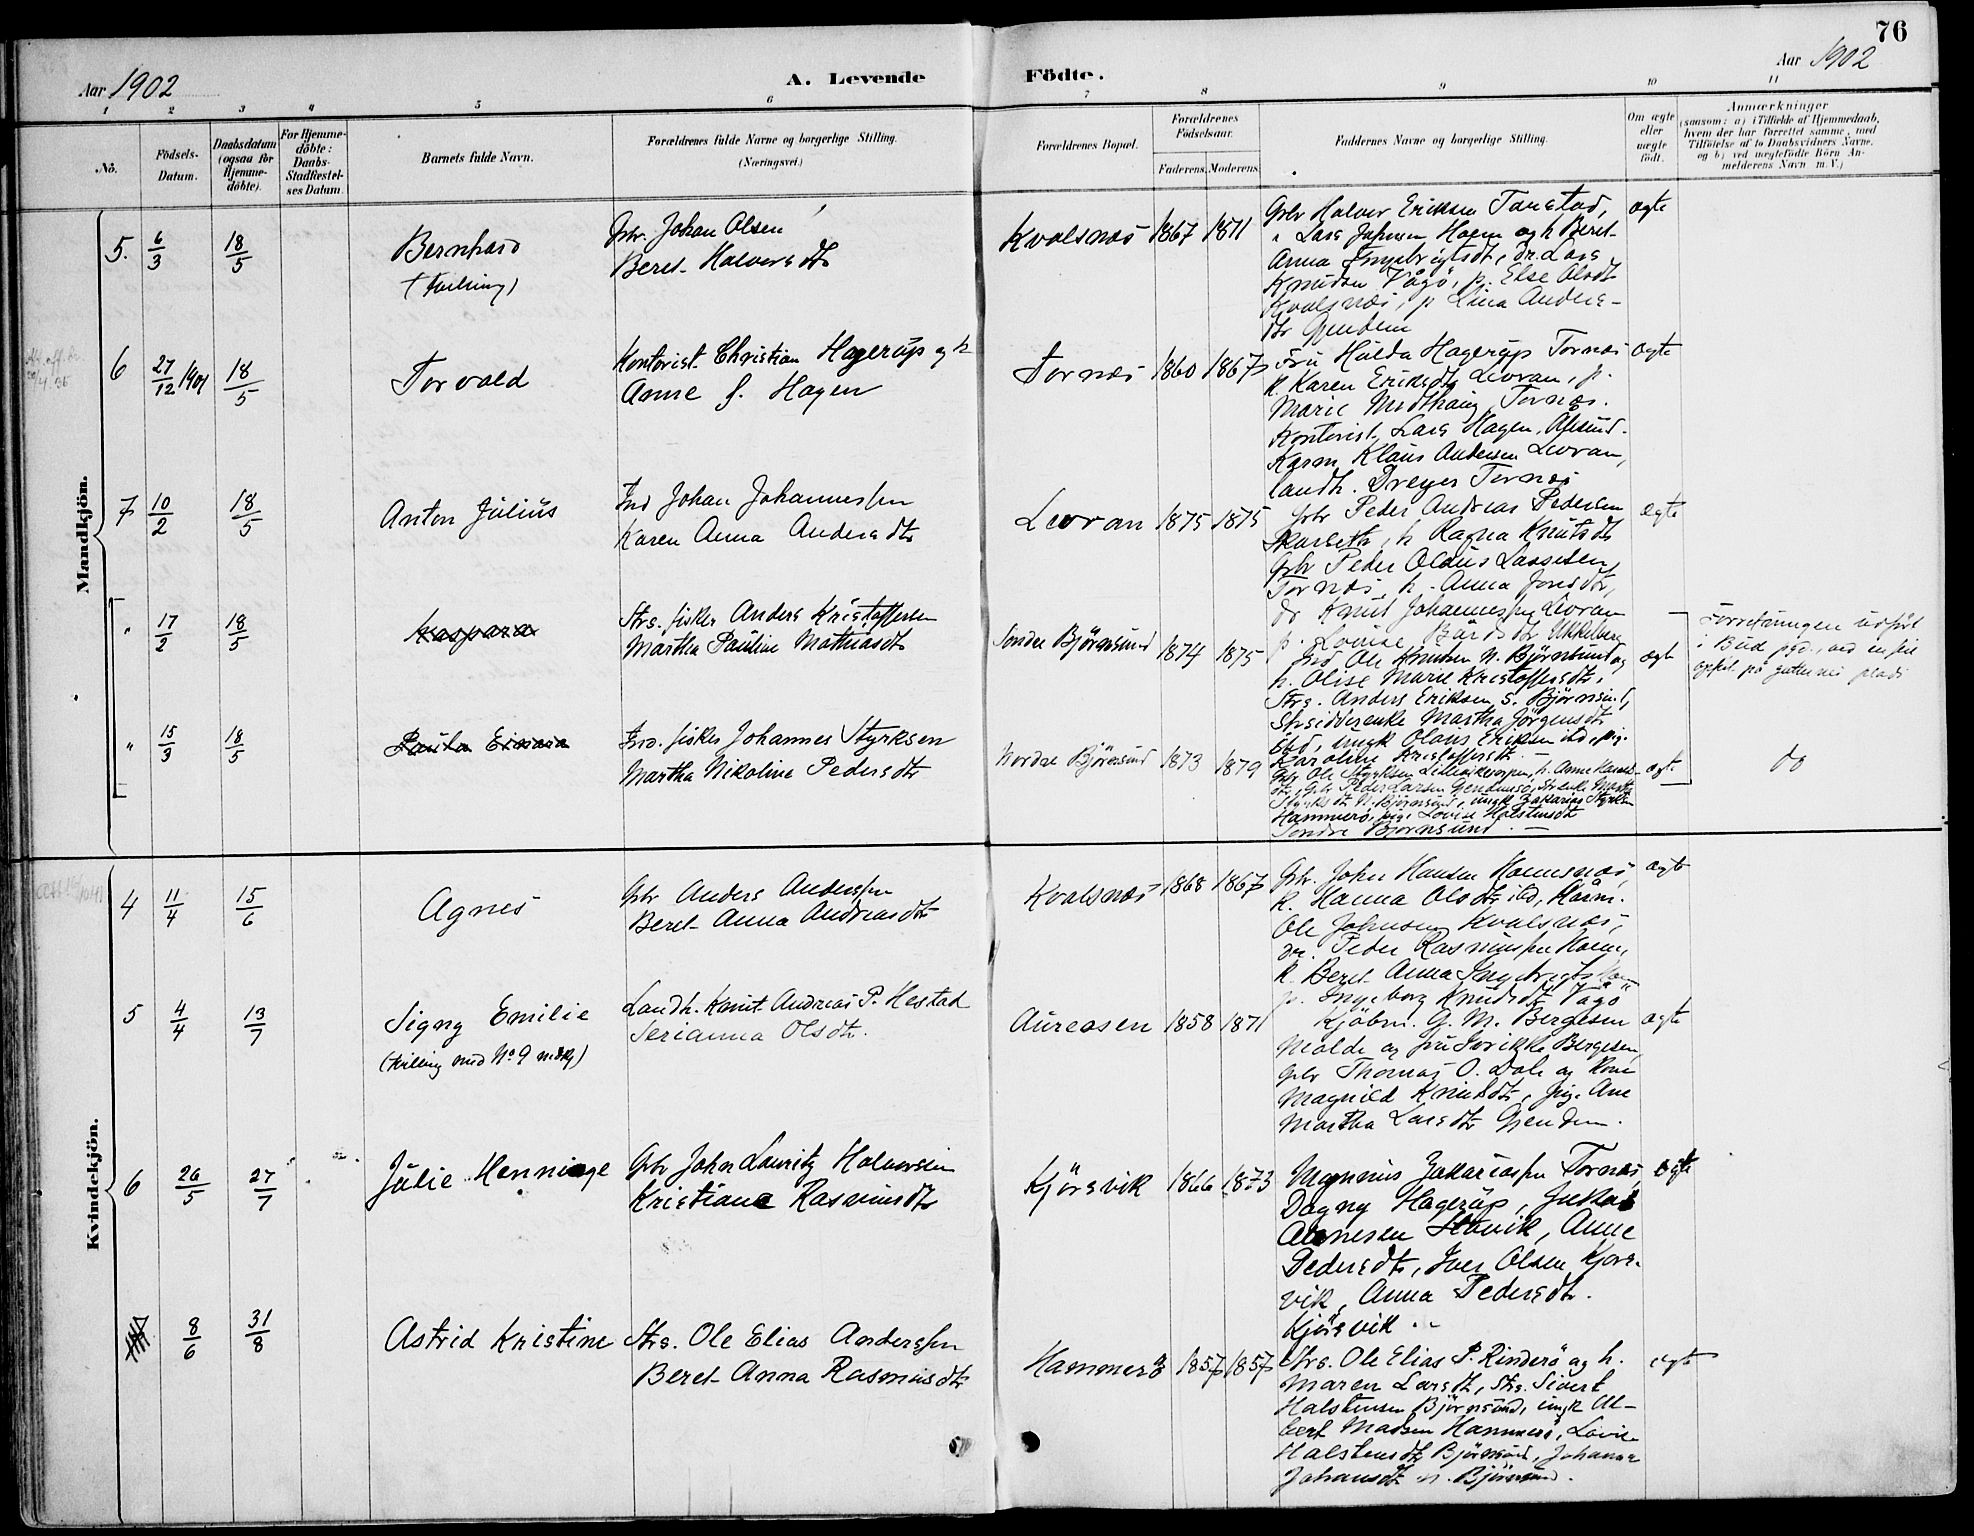 76
Aar 1902
A. Levende
Födte.
Aar 1902
1 2 3 4 5 6 7 8 9 10 11
No.
Födsels-
Datum.
Daabsdatum
(ogsaa for
Hjemme-
döbte).
For Hjemme-
döbte:
Daabs-
Stadfæstel-
ses Datum.
Barnets fulde Navn.
Forældrenes fulde Navne og borgerlige Stilling.
(Næringsvei.)
Forældrenes Bopæl.
Forældrenes
Födselsaar.
Faderens. Moderens.
Faddernes Navne og borgerlige Stilling.
Om ægte
eller
uægte
födt.
Anmærkninger
(saasom: a) i Tilfælde af Hjemmedaab,
hvem der har forrettet samme, med
Tilföielse af to Daabsvidners Navne,
og b) ved uægtefödte Börn An-
melderens Navn m. V.)
Mandkjön.
5. 6/3 18/5
Bernhard
(tvilling)
Gbr. Johan Olsen
Beret Halversdtr
Kvalsnæs 1867 1871
Gbr Halver Eriksen Tanstad,
" Lars Johnsen Hoem og h Beret
Anna Ingebrigtsdt, dr. Lars
Knudsen Vågö, p. Else Olsdt
Kvalsnæs, p Lina Anders-
dtr Gjendem
ægte
6 27/12 1901 18/5
Torvald
Kontorist Christian Hagerup og h
Anne f. Hagen
Tornæs 1860 1867
Fru Hulda Hagerup Tornæs
k. Karen Eriksdtr Levran, p.
Marie Midthaug Tornæs.
Kontorist Lars Hagen, Ålesund.
Karm Klaus Andersen Levran,
landh. Dreyer Tornæs
ægte
7 10/2 18/5
Anton Julius
Ind Johan Johannessen
Karen Anna Andersdtr
Levran 1875 1875
Gbr Peder Andreas Pedersen
Skarseth, h Ragna Knutsdtr
Gbr Peder Olaus Lassesen
Tornæs h. Anna Jonsdtr,
dr Knut Johannessen Levran
p. Lovise Bårdsdtr
ægte
" 17/2 18/5
Kaspara
Strs. fisker Anders Kristoffersen
Martha Pauline Mathiasdtr
Söndre Björnsund 1874 1875
Ind Ole Knutsen N. Björnsund og
h. Olise Marie Kristoffersdtr,
Strs. Anders Eriksen S. Björnsund,
Strsidderenke Martha Jörgensdtr
ibd, ungk Olaus Eriksen ibd, pig.
Karoline Kristoffersdtr
ægte
Forretningen udfört
i Bud
" 15/3 18/5
Paula Einara
Ind. fisker Johannes Styrksen
Martha Nikoline Pedersdtr
Nordre Björnsund 1873 1879
Gbr Ole Styrksen , h. Anne
dtr, Gbr Peder Larsen Gjendemsö, Str.enke Martha
Styrksdtr N. Björnsund, ungk Zakarias Styrksen
Hammerö, pige Lovise Halstensdtr
Söndre Björnsund.
ægte
do
Kvindekjön.
4 11/4 15/6
Agnes
Gbr Anders Andersen
Beret Anna Andreasdtr
Kvalsnæs 1868 1867
Gbr. John Hansen Hoemsnæs,
k. Hanna Olsdtr ibd, Kårm.
Ole Johnsen Kvalsnæs,
dr. Peder Rasmussen Hoem,
k. Beret Anna Ingebrigtsdtr Hoem
p. Ingeborg Knudsdtr Vågö
ægte
5 4/4 13/7
Signy Emilie
(tvilling med No. 9 mdkj)
Landh. Knut Andreas P. Hestad
Serianna Olsdtr.
Aureosen 1858 1871
Kjöbm. G. M. Bergesen
Molde og fru Fredrikke Bergesen,
Gbr Thomas O. Dale og Kone
Magnild Knutsdtr, pig. Ane
Martha Larsdtr Gjendem.
ægte
6 26/5 27/7
Julie Henninge
Gbr John Lauritz Halversen
Kristiane Rasmusdtr
Kjörsvik 1866 1873
Magnus Zakariassen Tornæs,
Dagny Hagerup,
Arnesen Stavik, Anne
Pedersdtr, Iver Olsen Kjörs-
vik, Anna Pedersdtr.
Kjörsvik.
ægte
8/6 31/8
Astrid Kristine
Strs. Ole Elias Anderssen
Beret Anna Rasmusdtr
Hammerö 1857 1857
Strs. Ole Elias P. Rinderö og h.
Maren Larsdtr, Strs. Sivert
Halstensen Björnsund, ungk Al-
bert Madsen Hammerö, Lovise
Halstensdtr Björnsund, Johanna
Johansdtr N. Björnsund.
ægte